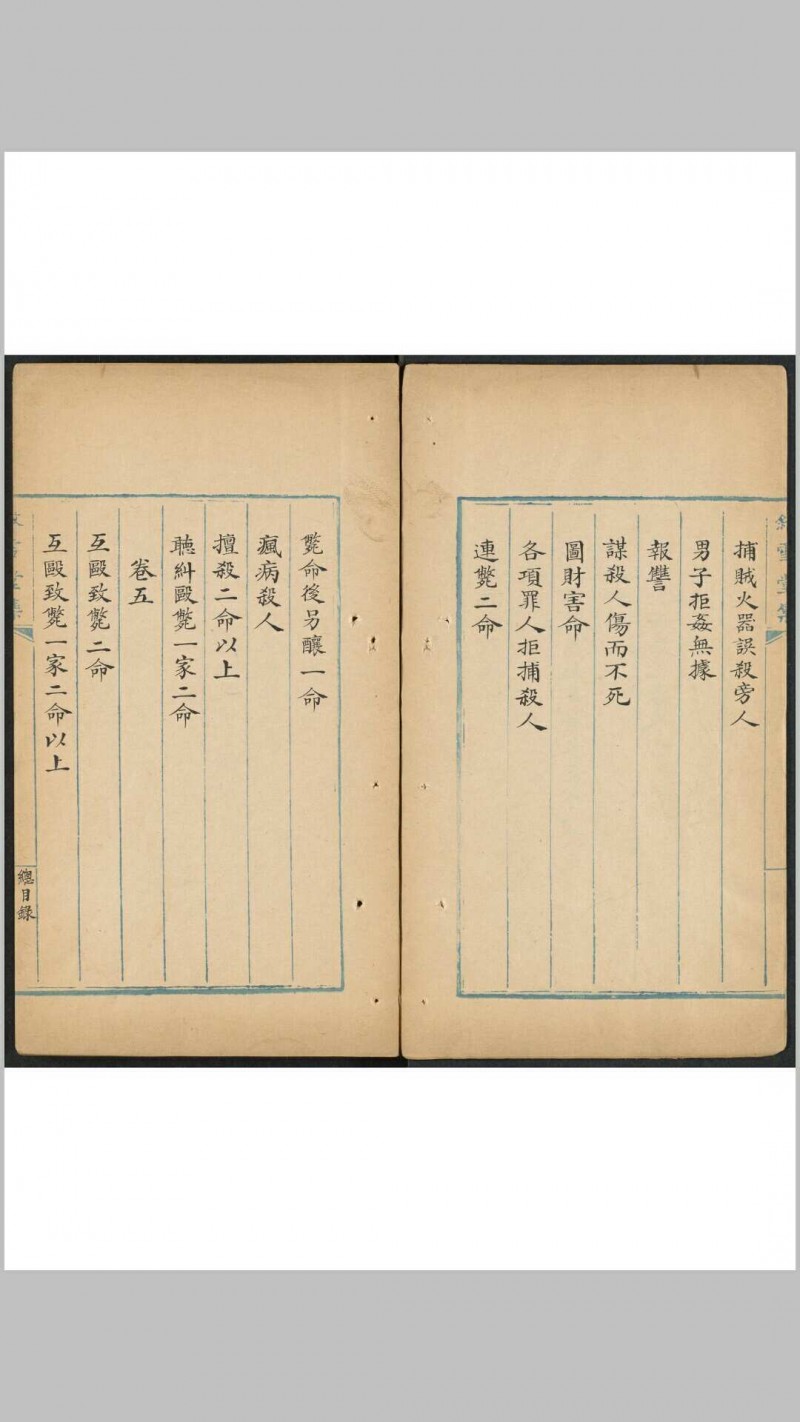 捕賊火器誤殺旁人
男子拒姦無據
報讐
謀殺人傷而不死
圖財害命
各項罪人拒捕殺人
連斃二命
斃命後另釀一命
瘋病殺人
擅殺二命以上
聽糾毆斃一家二命
卷五
互毆致斃二命
互毆致斃一家二命以上
總目錄